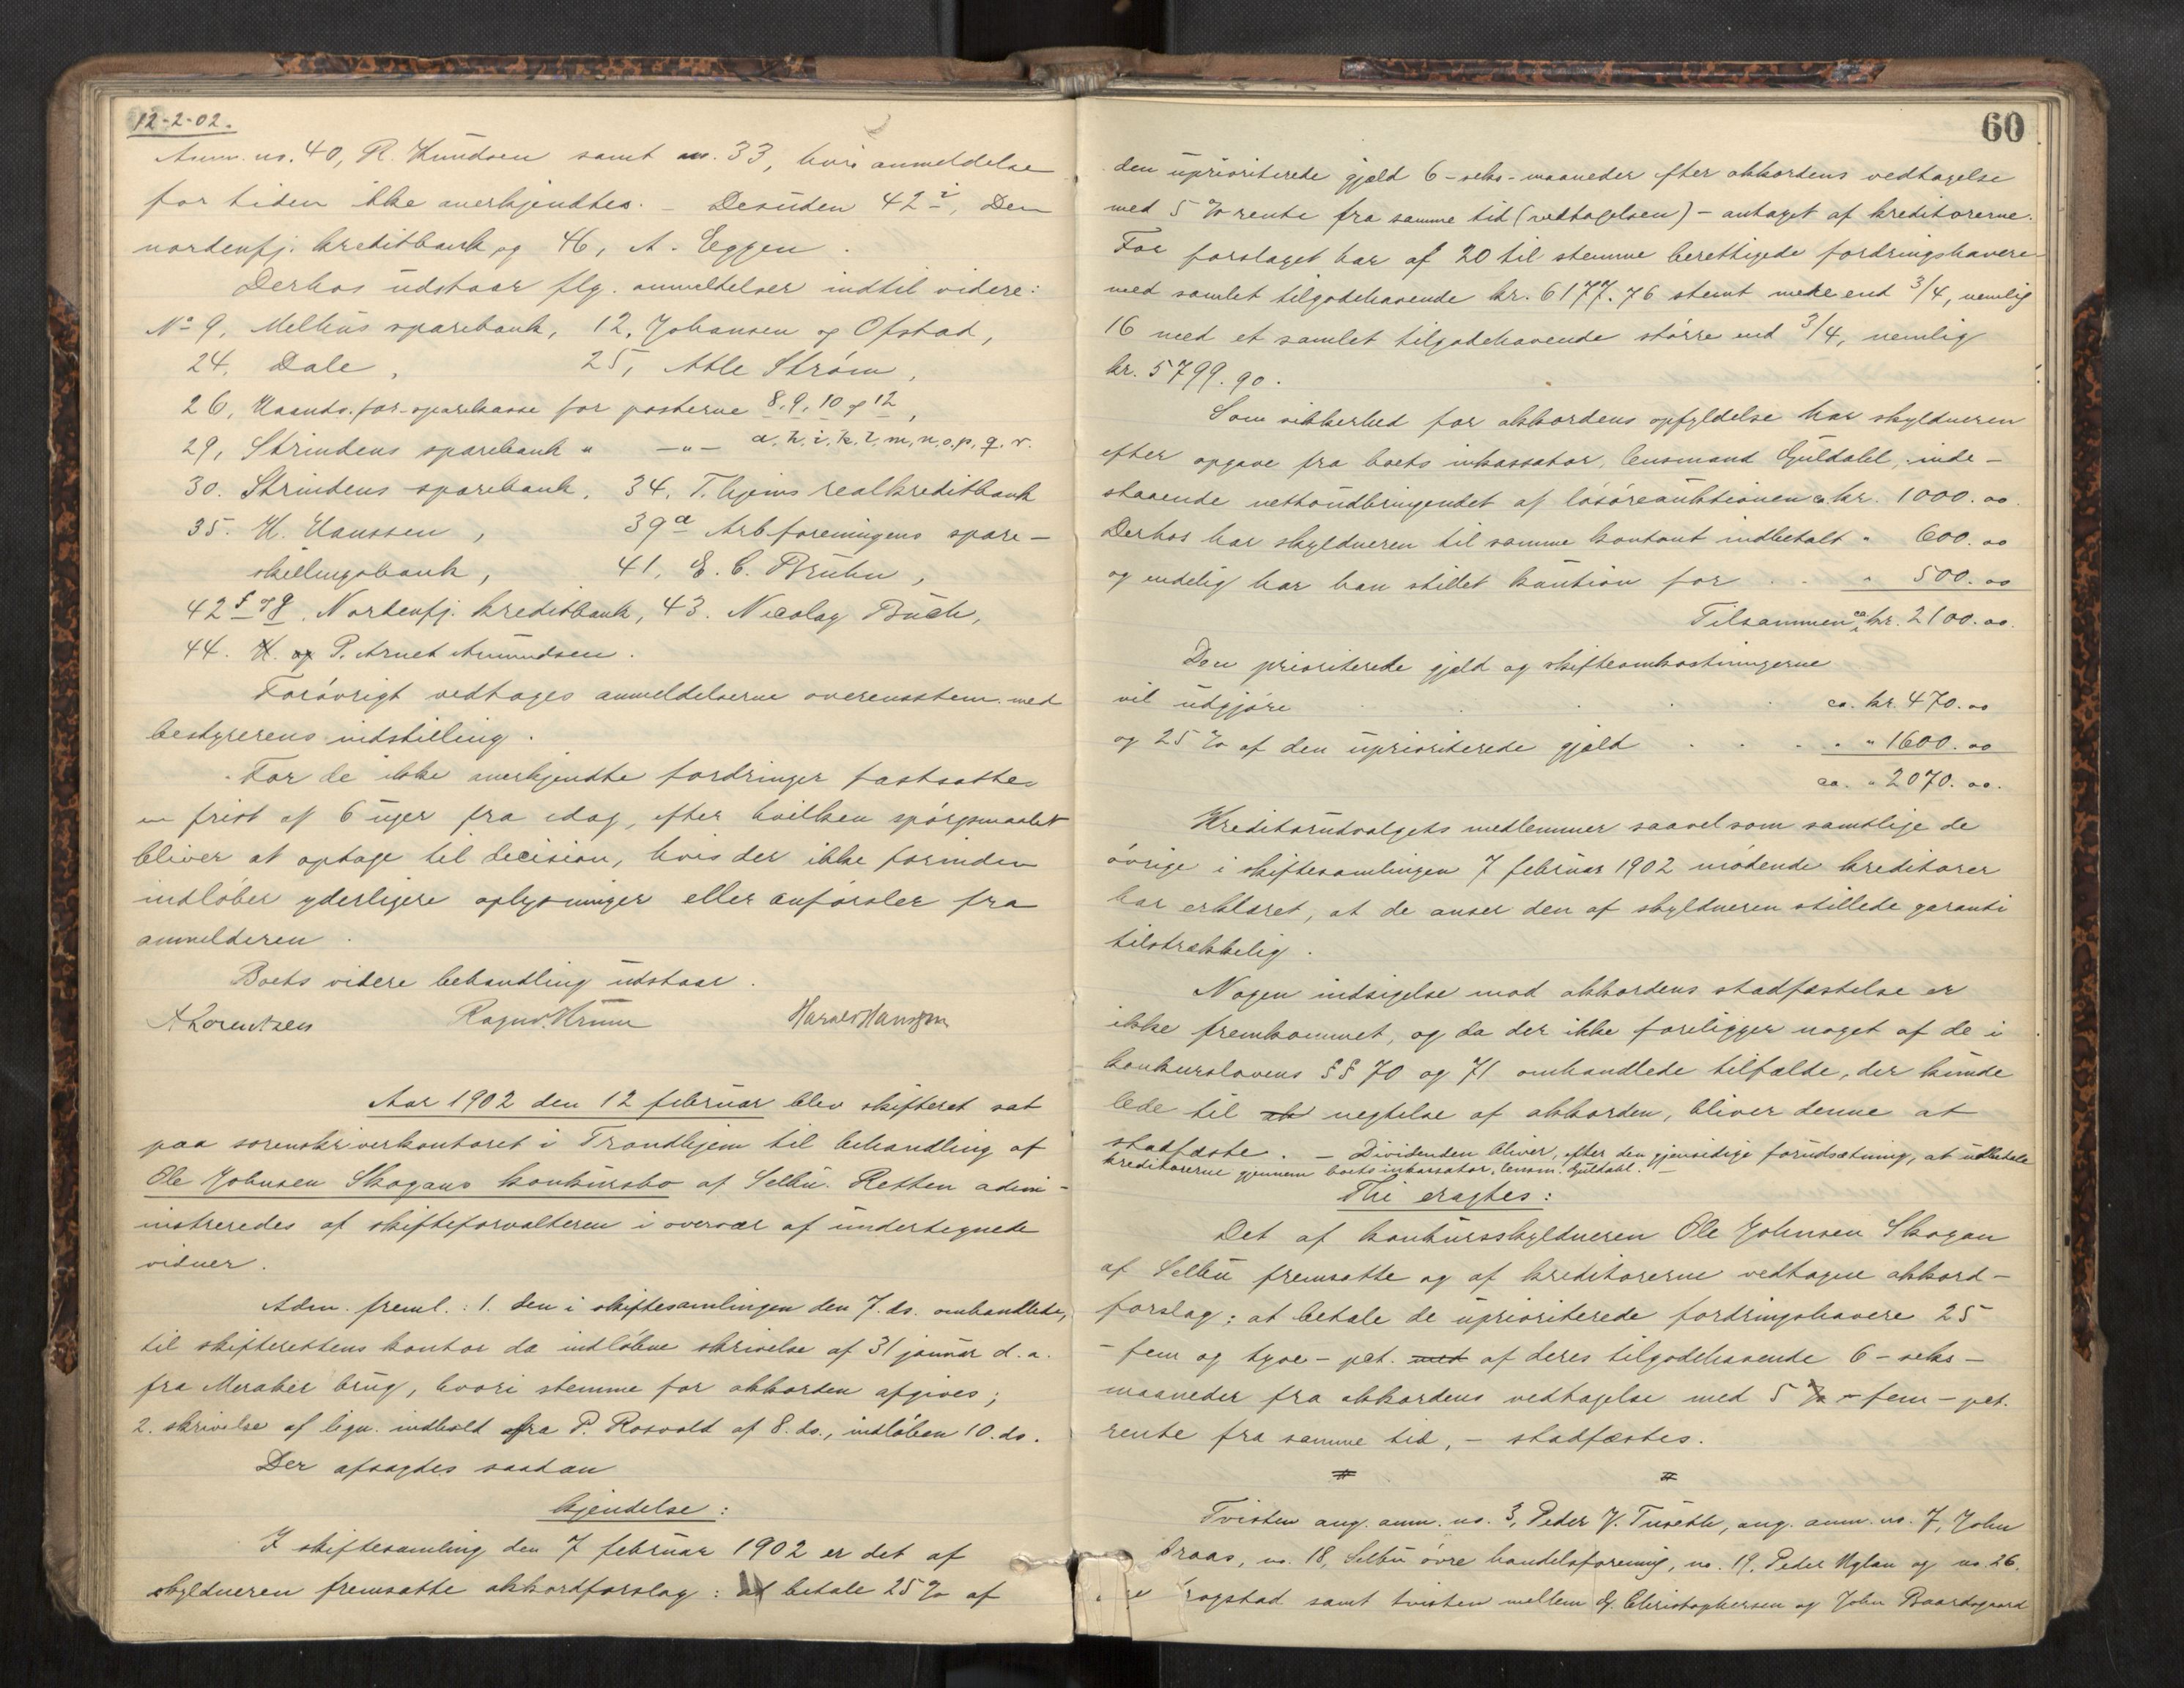 12-2-02.
Anm. no. 40, R. Knudsen samt no. 33, hvis anmeldelse
for tiden ikke anerkjendtes. – Desuden 42 i, Den
nordenfj. kreditbank og 46, A. Eggen.
Derhos udstaar flg. anmeldelser indtil videre:
No 9, Melhus sparebank, 12, Johansen og Ofstad,
24. Dale, 25, Atle Strøm,
26, Haandv. for. sparekasse for posterne 8, 9, 10 og 12,
29, Strindens sparebank " —"— a. h. i. k. l. m, n. o. p. q. r.
30. Strindens sparebank, 34, T.hjems realkreditbank
35. H. Hanssen, 39a Arbforeningens spare-
skillingsbank, 41, E. C. Bruhn,
42 f og g. Nordenfj. kreditbank, 43. Nicolay Buch,
44. H. og P. Arnet Amundsen.
Forøvrigt vedtoges anmeldelserne overensstem. med
bestyrerens indstilling.
For de ikke anerkjendte fordringer fastsattes
en frist af 6 uger fra idag, efter hvilken spørgsmaalet
bliver at optage til decision, hvis der ikke forinden
indløber yderligere oplysninger eller anførsler fra
anmelderen.
Boets videre behandling udstaar.
A Lorentzen Ragnv. Krum Harald Hansen
Aar 1902 den 12 februar blev skifteret sat
paa sorenskriverkontoret i Trondhjem til behandling af
Ole Johnsen Skogans konkursbo af Selbu. Retten admi-
nistreredes af skifteforvalteren i overvær af undertegnede
vidner.
Adm. freml.: 1. den i skiftesamlingen den 7. ds. omhandlede,
til skifterettens kontor da indløbne skrivelse af 31 januar d. a.
fra Meraker brug, hvori stemme for akkorden afgives;
2. skrivelse af lign. indhold fra P. Rosvold af 8. ds., indløben 10. ds.
Der afsagdes saadan
kjendelse:
I skiftesamling den 7 februar 1902 er det af
skyldneren fremsatte akkordforslag: at betale 25 % af
60
den uprioriterede gjæld 6 – seks – maaneder efter akkordens vedtagelse
med 5 % rente fra samme tid (vedtagelsen) – antaget af kreditorerne.
For forslaget har af 20 til stemme berettigede fordringshavere
med samlet tilgodehavende kr. 6177.76 stemt mere end 3/4, nemlig
16 med et samlet tilgodehavende større end 3/4, nemlig
kr. 5799.90.
Som sikkerhed for akkordens opfyldelse har skyldneren
efter opgave fra boets inkassator, lensmand Guldahl, inde-
staaende nettoudbringendet af løsøreauktionen ca. kr. 1000.00.
Derhos har skyldneren til samme kontant indbetalt " 600.00
og endelig har han stillet kaution for . . " 500.00
Tilsammen ca. kr. 2100.00.
Den prioriterede gjæld og skifteomkostningerne
vil udgjøre . . . . . ca. kr. 470.00
og 25 % af den uprioriterede gjæld . . . . " 1600.00
ca. " 2070.00.
Kreditorudvalgets medlemmer saavelsom samtlige de
øvrige i skiftesamlingen 7 februar 1902 mødende kreditorer
har erklæret, at de anser den af skyldneren stillede garanti
tilstrækkelig.
Nogen indsigelse mod akkordens stadfæstelse er
ikke fremkommet, og da der ikke foreligger noget af de i
konkurslovens §§ 70 og 71 omhandlede tilfælde, der kunde
lede til negtelse af akkorden, bliver denne at
stadfæste. – Dividenden bliver, efter den gjensidige forudsætning, at udbetale
kreditorerne gjennem boets inkassator, lensm. Guldahl. –
Thi eragtes:
Det af konkursskyldneren Ole Johnsen Skogan
af Selbu fremsatte og af kreditorerne vedtagne akkord-
forslag: at betale de uprioriterede fordringshavere 25
– fem og tyve – pct. med af deres tilgodehavende 6 – seks –
maaneder fra akkordens vedtagelse med 5 % – fem – pct.
rente fra samme tid, – stadfæstes.
# #
Tvisten ang. anm. no. 3, Peder J. Tuseth, ang. anm. no. 7, John
braas, no. 18, Selbu øvre handelsforening, no. 19, Peder Uglan og no. 26,
rogstad samt tvisten mellem G. Christophersen og John Baardsgaard